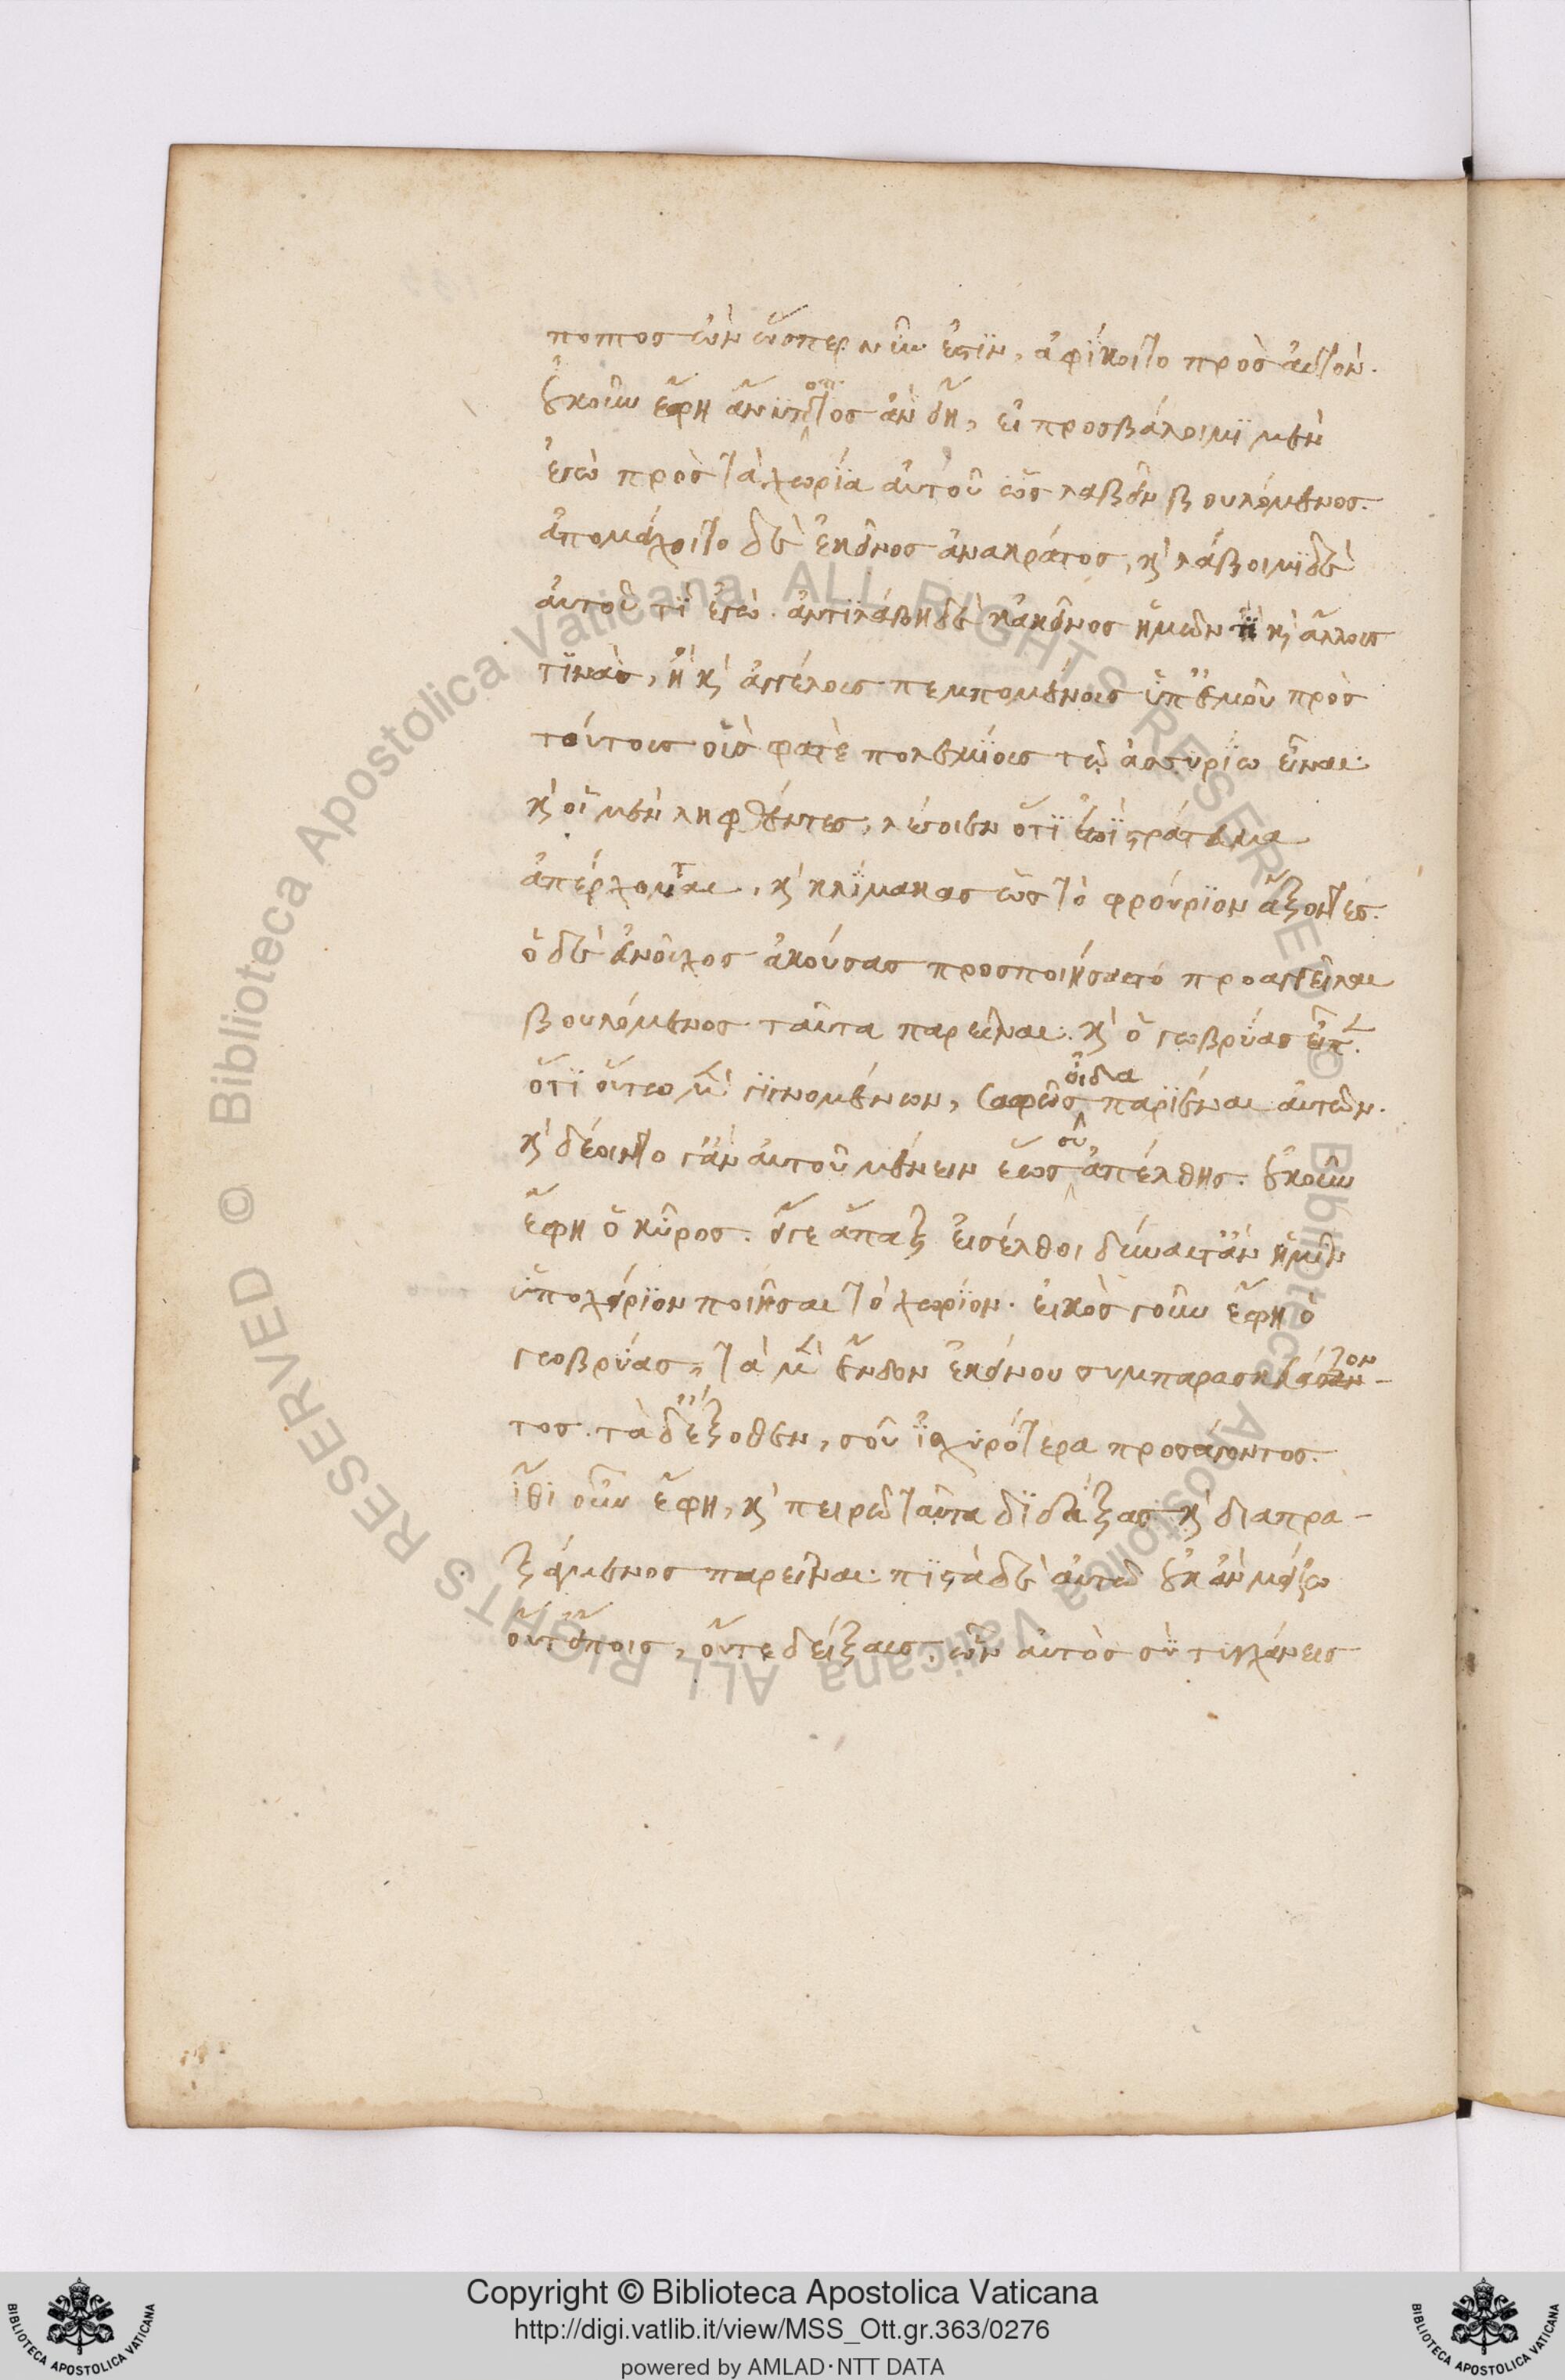 ποπτος ὢν ὥσπερ νῦν ἐστὶν, ἀφίκοιτο πρὸς αὐτὸν.
οὐκοῦν ἔφη ἀνύποπτος ἂν εἴη, εἰ προσβάλοιμι μὲν
ἐγὼ πρὸς τὰ χωρία αὐτοῦ ὡς λαβεῖν βουλόμενος.
ἀπομάχοιτο δὲ ἐκεῖνος ἀνακράτος, καὶ λάβοιμι δὲ
αὐτοῦ τι ἐγὼ. ἀντιλάβη δὲ κἀκεῖνος ἡμῶν ἢ καὶ ἄλλους
τινὰς, ἢ καὶ ἀγγέλους πεμπομένους ὑπ' ἐμοῦ πρὸς
τούτους οὓς φατὲ πολεμίους τῷ ἀσσυρίω εἶναι.
καὶ οἱ μὲν ληφθέντες, λέγοιεν ὅτι ἐπὶ στράτευμα
ἀπέρχονται, καὶ κλίμακας ὡς τὸ φρούριον ἄξοντες.
ὁ δὲ εὐνοῦχος ἀκούσας προσποιήσαιτο προαγγεῖλαι
βουλόμενος ταῦτα παρεῖναι. καὶ ὁ γωβρύας εἶπεν.
ὅτι οὕτω μὲν γιγνομένων, σαφῶς οἶδα παριέναι αὐτῶν.
καὶ δέοιντο γ' ἂν αὐτοῦ μένειν ἕως σὺ ἀπέλθης. οὐκοῦν
ἔφη ὁ κῦρος. εἴγε ἅπαξ εἰσέλθοι δύναιτ' ἂν ἡμῖν
ὑποχείριον ποιῆσαι τὸ χωρίον. εἰκὸς γοῦν ἔφη ὁ
γωβρύας, τὰ μὲν ἔνδον ἐκείνου συμπαρασκευάζον-
τος. τὰ δ' ἔξοθεν, σοῦ ἰσχυρότερα προσάγοντος.
ἴθι οὖν ἔφη, καὶ πειρῶ ταῦτα διδάξας καὶ διαπρα-
ξάμενος παρεῖναι. πιστὰ δὲ αὐτῶ οὐκ ἂν μείζω
οὔτ' εἴποις, οὔτε δείξαις. ὧν αὐτὸς σὺ τυγχάνεις
Copyright © Biblioteca Apostolica Vaticana
http://digi.vatlib.it/view/MSS_Ott.gr.363/0276
powered by AMLAD·NTT DATA